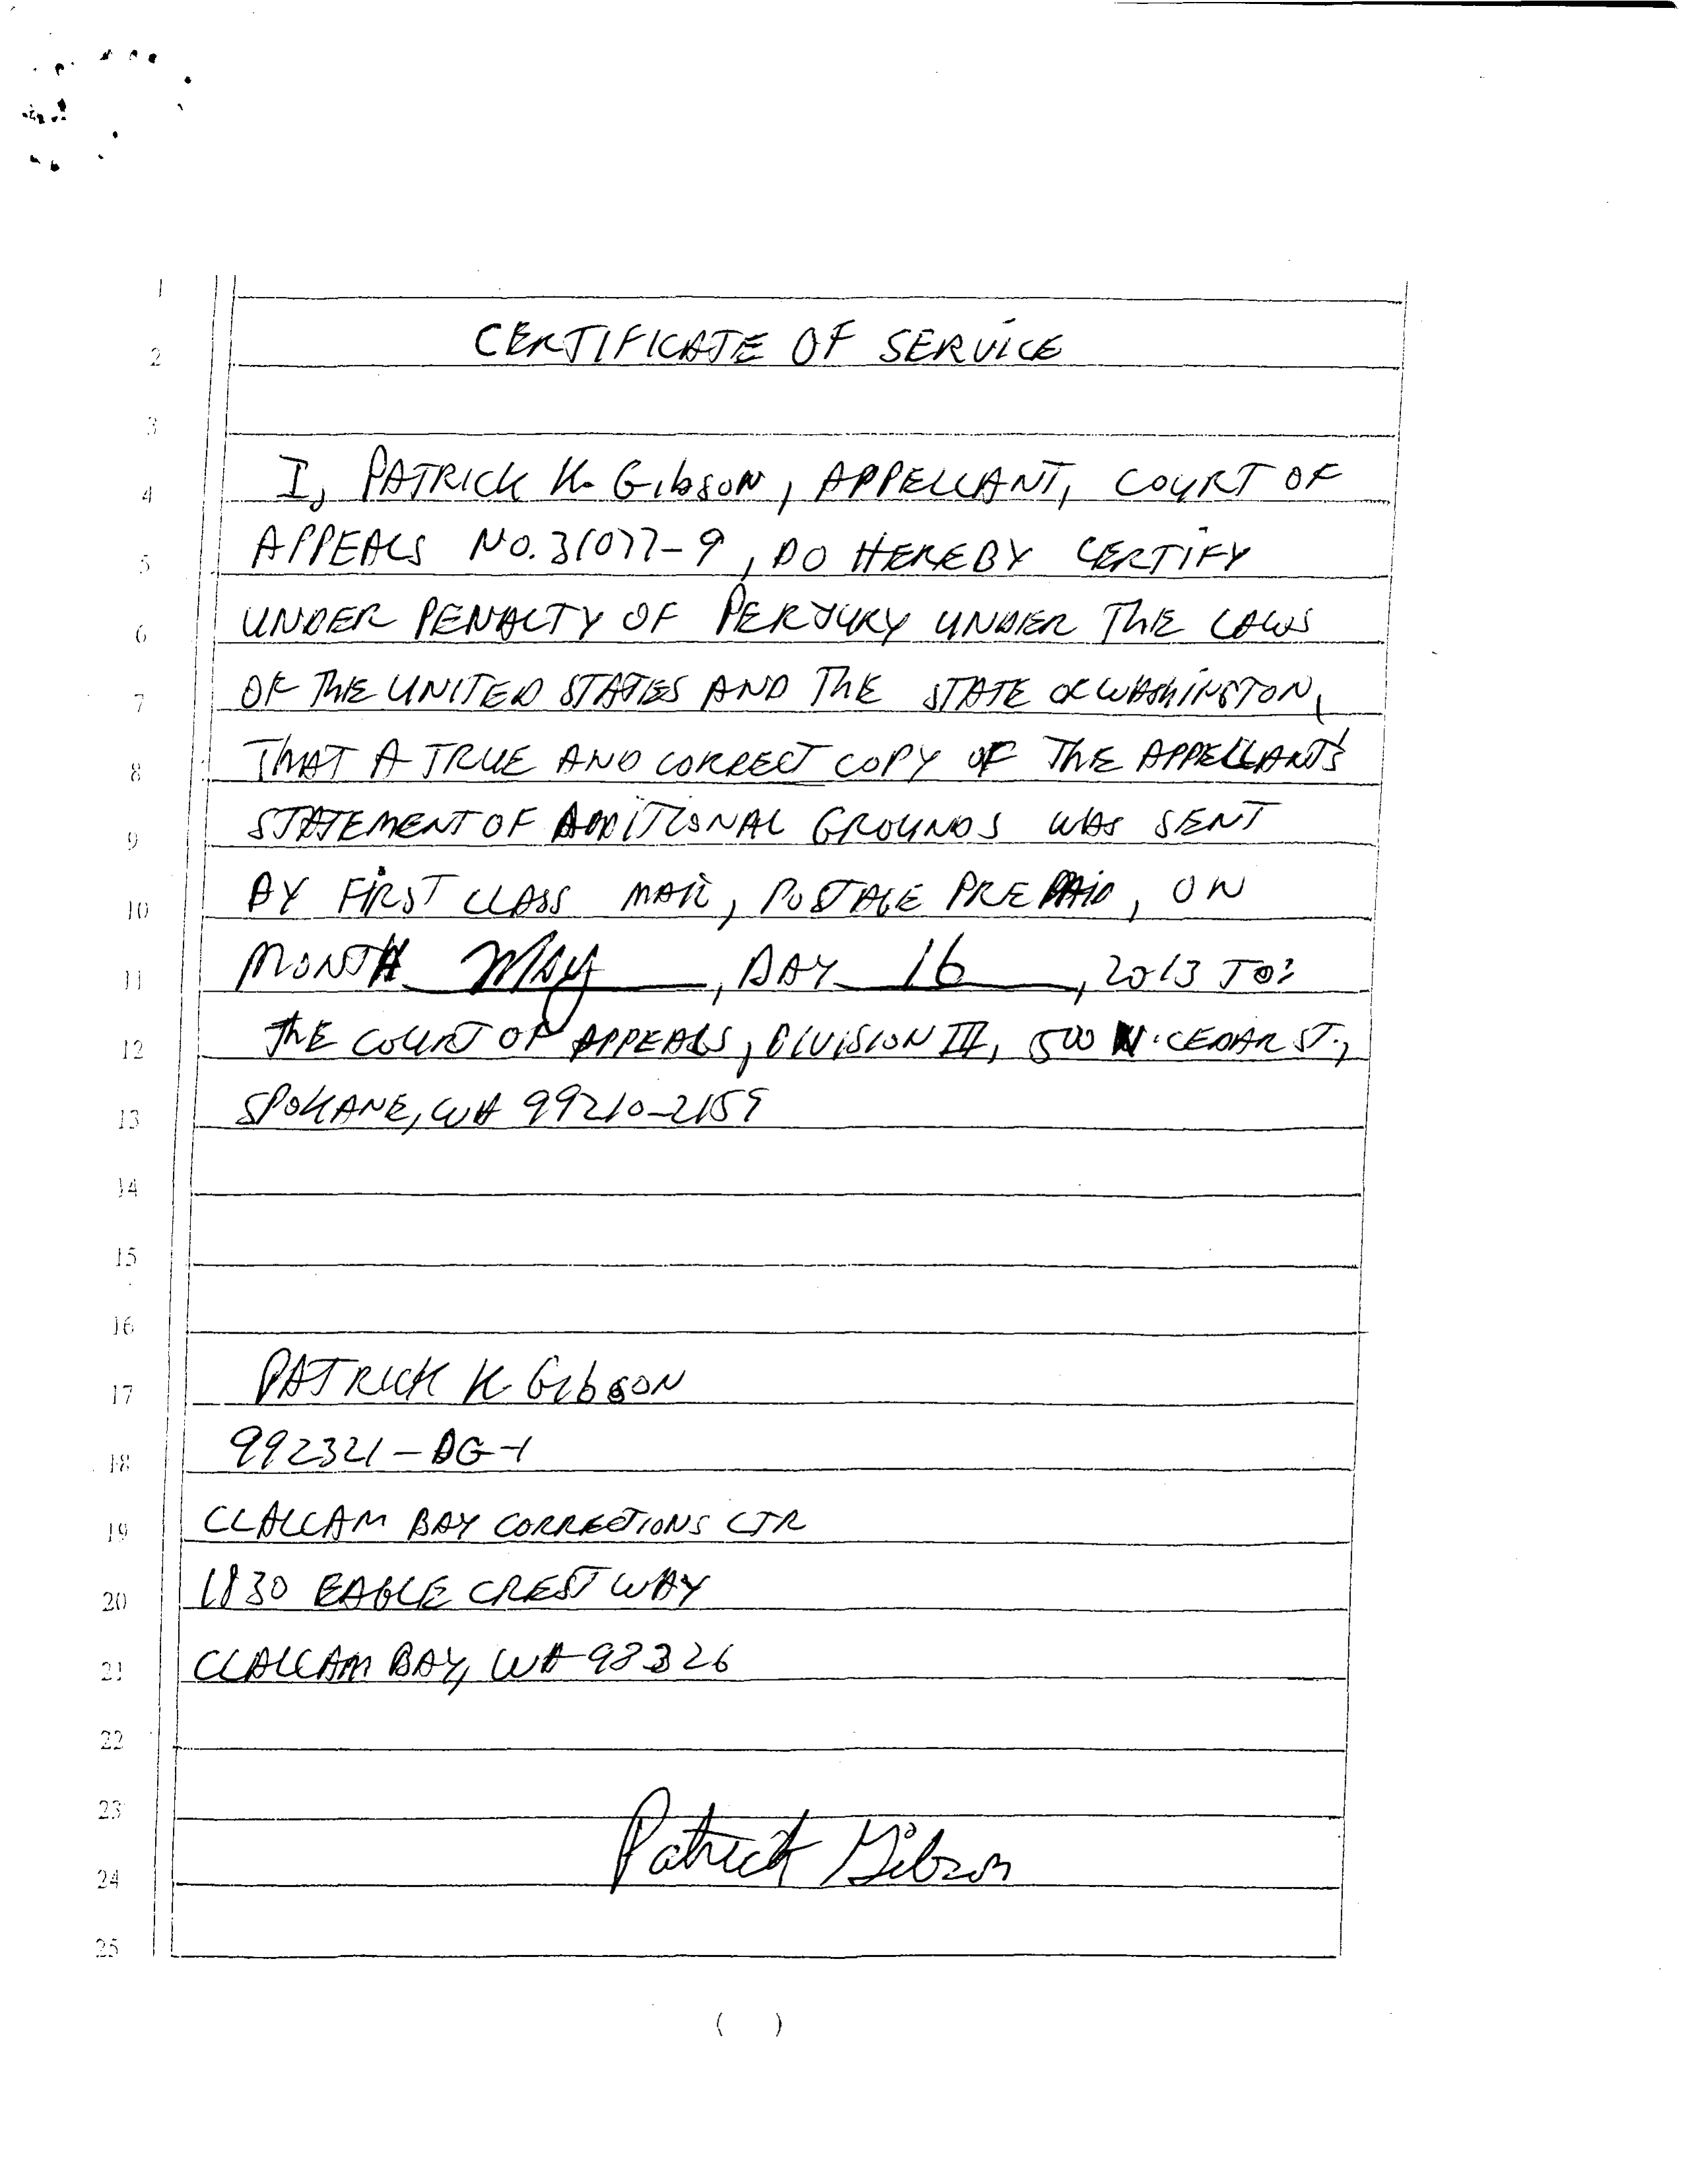 1
CERTIFICATE OF SERVICE
2
3
I, PATRICK K. GibSON, APPELLANT, COURT OF
4
APPEALS NO. 31077-9, DO HEREBY CERTIFY
5
UNDER PENALTY OF PERJURY UNDER THE LAWS
6
OF THE UNITED STATES AND THE STATE OF WASHINGTON,
7
THAT A TRUE AND CORRECT COPY OF THE APPELLANT'S
8
STATEMENT OF ADDITIONAL GROUNDS WAS SENT
9
BY FIRST CLASS MAIL, POSTAGE PREPAID, ON
10
MONTH MAY, DAY 16, 2013 TO:
11
THE COURT OF APPEALS, DIVISION III, 500 N. CEDAR ST.,
12
SPOKANE, WA 99210-2159
13
14
15
16
PATRICK K GibSON
17
992321-DG-1
18
CLALLAM BAY CORRECTIONS CTR
19
1830 EAGLE CREST WAY
20
CLALLAM BAY, WA 98326
21
22
23
Patrick Gibson
24
25
( )